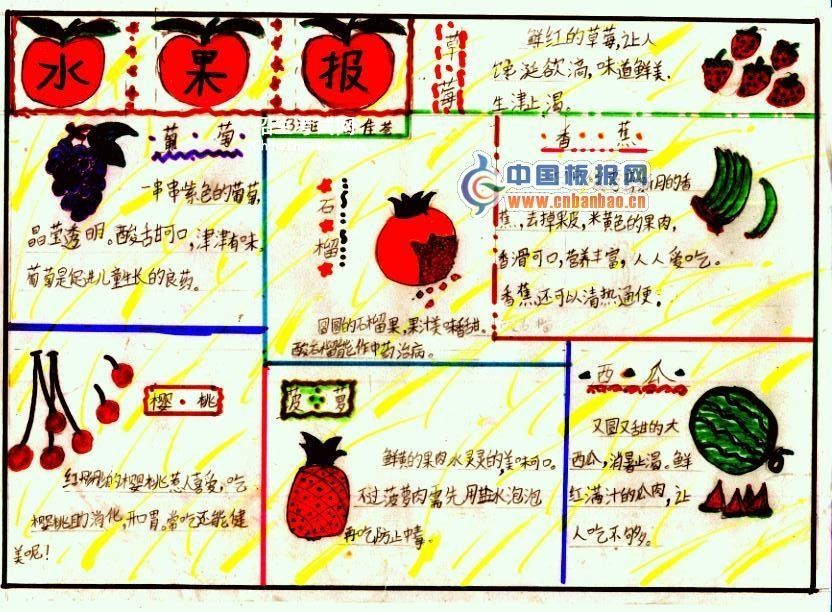 水 果 报
草莓
鲜红的草莓,让人
馋涎欲滴,味道鲜美,
生津止渴。
葡·萄
一串串紫色的葡萄,
晶莹透明。酸甜可口,津津有味,
葡萄是促进儿童生长的良药。
石榴
圆圆的石榴果,果汁美味香甜。
酸石榴能作中药治病。
香·蕉
中国板报网
www.cnbanbao.cn
的香
蕉,去掉果皮,米黄色的果肉,
香滑可口,营养丰富,人人爱吃。
香蕉还可以清热通便。
樱·桃
红彤彤的樱桃惹人喜爱,吃
樱桃助消化,和胃。常吃还能健
美呢!
菠萝
鲜黄的果肉水灵灵的,美味可口。
不过菠萝肉需先用盐水泡泡
再吃防止中毒.
西·瓜
又圆又甜的大
西瓜,消暑止渴。鲜
红满汁的瓜肉,让
人吃不够。